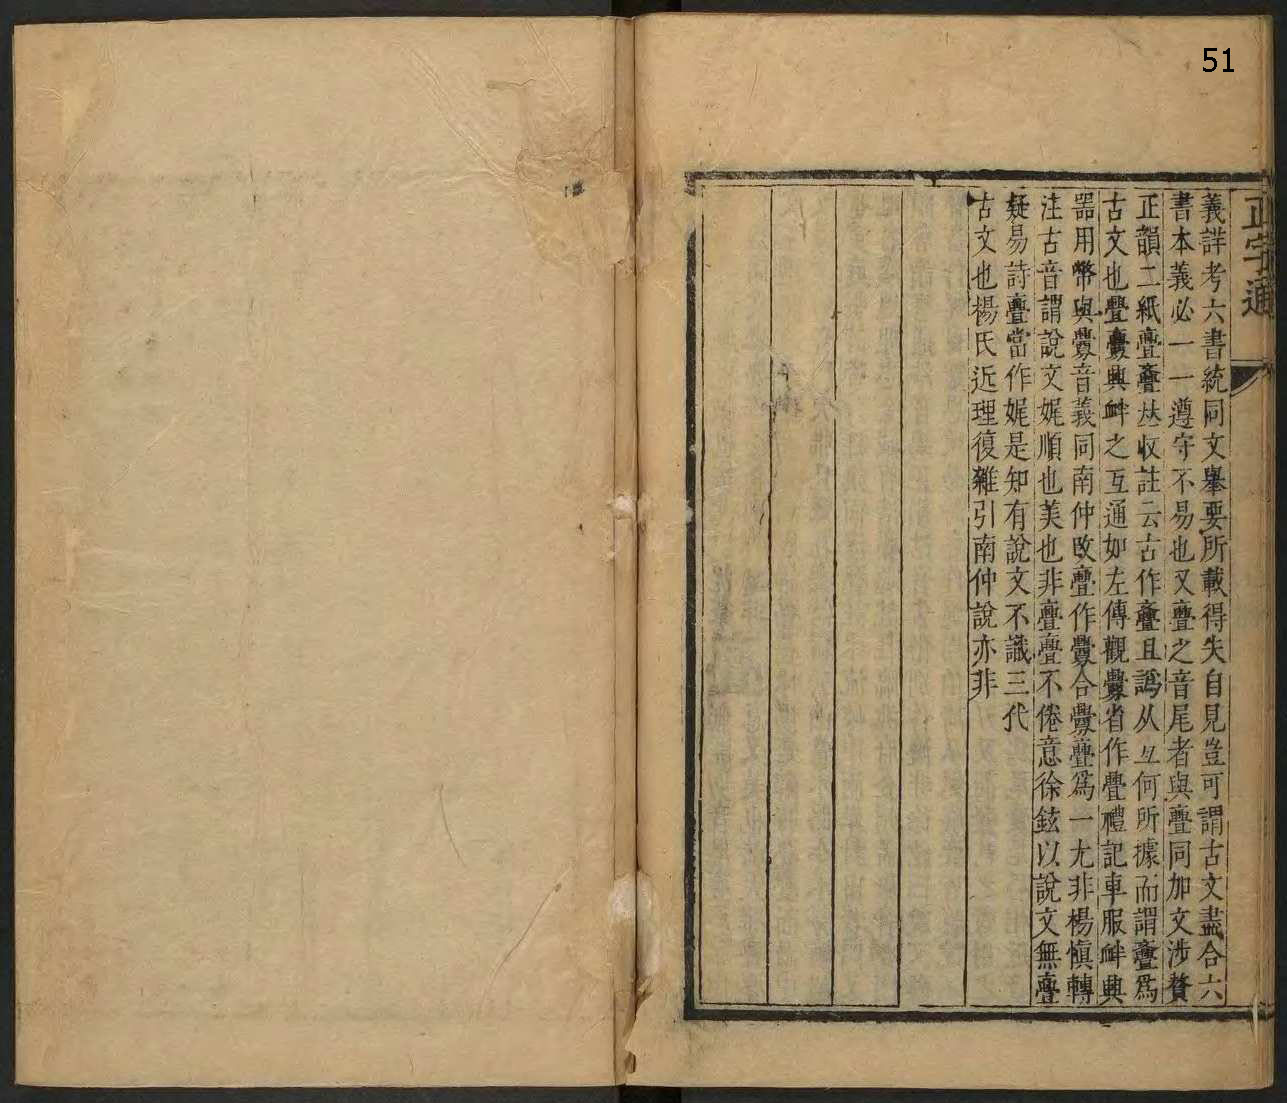 51
正字通
義詳考六書統同文舉要所載得失自見豈可謂古文盡合六
書本義必一一遵守不易也又亹之音尾者與亹同加文涉贅
正韻二紙亹斖𠀤收註云古作斖且譌从彑何所據而謂斖爲
古文也
興衅之互通如左傳觀釁省作舋禮記車服衅興
器用幣與釁音義同南仲改亹作釁合釁亹爲一尤非楊愼轉
注古音謂說文娓順也美也非亹亹不倦意徐鉉以說文無亹
疑易詩亹當作娓是知有說文不識三代
古文也楊氏近理復雜引南仲說亦非